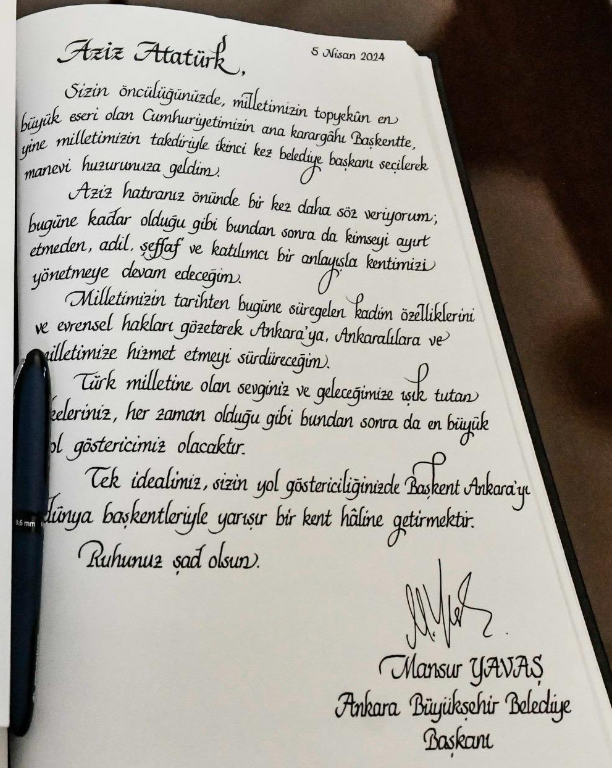 Aziz Atatürk,
5 Nisan 2024
Sizin öncülüğünüzde, milletimizin topyekûn en
büyük eseri olan Cumhuriyetimizin ana karargâhı Başkentte,
yine milletimizin takdiriyle ikinci kez belediye başkanı seçilerek
manevi huzurunuza geldim.
Aziz hatıranız önünde bir kez daha söz veriyorum;
bugüne kadar olduğu gibi bundan sonra da kimseyi ayırt
etmeden, adil, şeffaf ve katılımcı bir anlayışla kentimizi
yönetmeye devam edeceğim.
Milletimizin tarihten bugüne süregelen kadim özelliklerini
ve evrensel hakları gözeterek Ankara'ya, Ankaralılara ve
milletimize hizmet etmeyi sürdüreceğim.
Türk milletine olan sevginiz ve geleceğimize ışık tutan
, her zaman olduğu gibi bundan sonra da en büyük
yol göstericimiz olacaktır.
Tek idealimiz, sizin yol göstericiliğinizde Başkent Ankara'yı
dünya başkentleriyle yarışır bir kent hâline getirmektir.
Ruhunuz şad olsun.
Mansur YAVAŞ
Ankara Büyükşehir Belediye
Başkanı